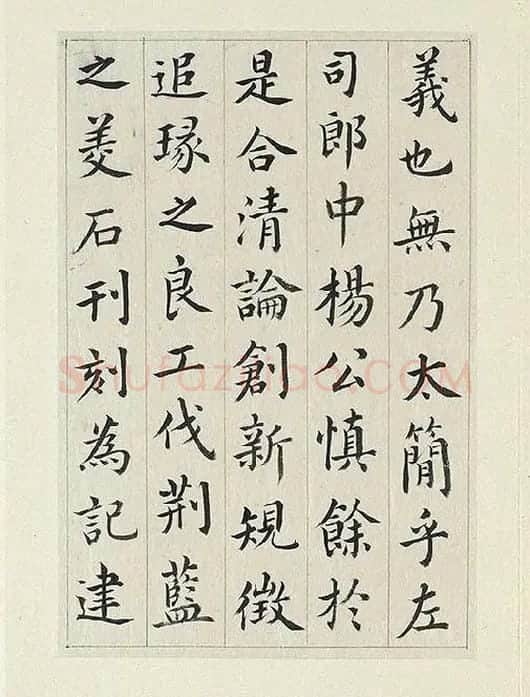 義也無乃太簡乎左
司郎中楊公慎餘扵
是合清論創新䂓徵
追琢之良工伐荆藍
之美石刊刻為記建
Shufaziliao.COM